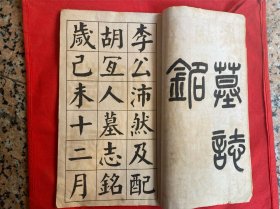 墓誌
銘
李公沛然及配
胡宜人墓志銘
歲己未十二月